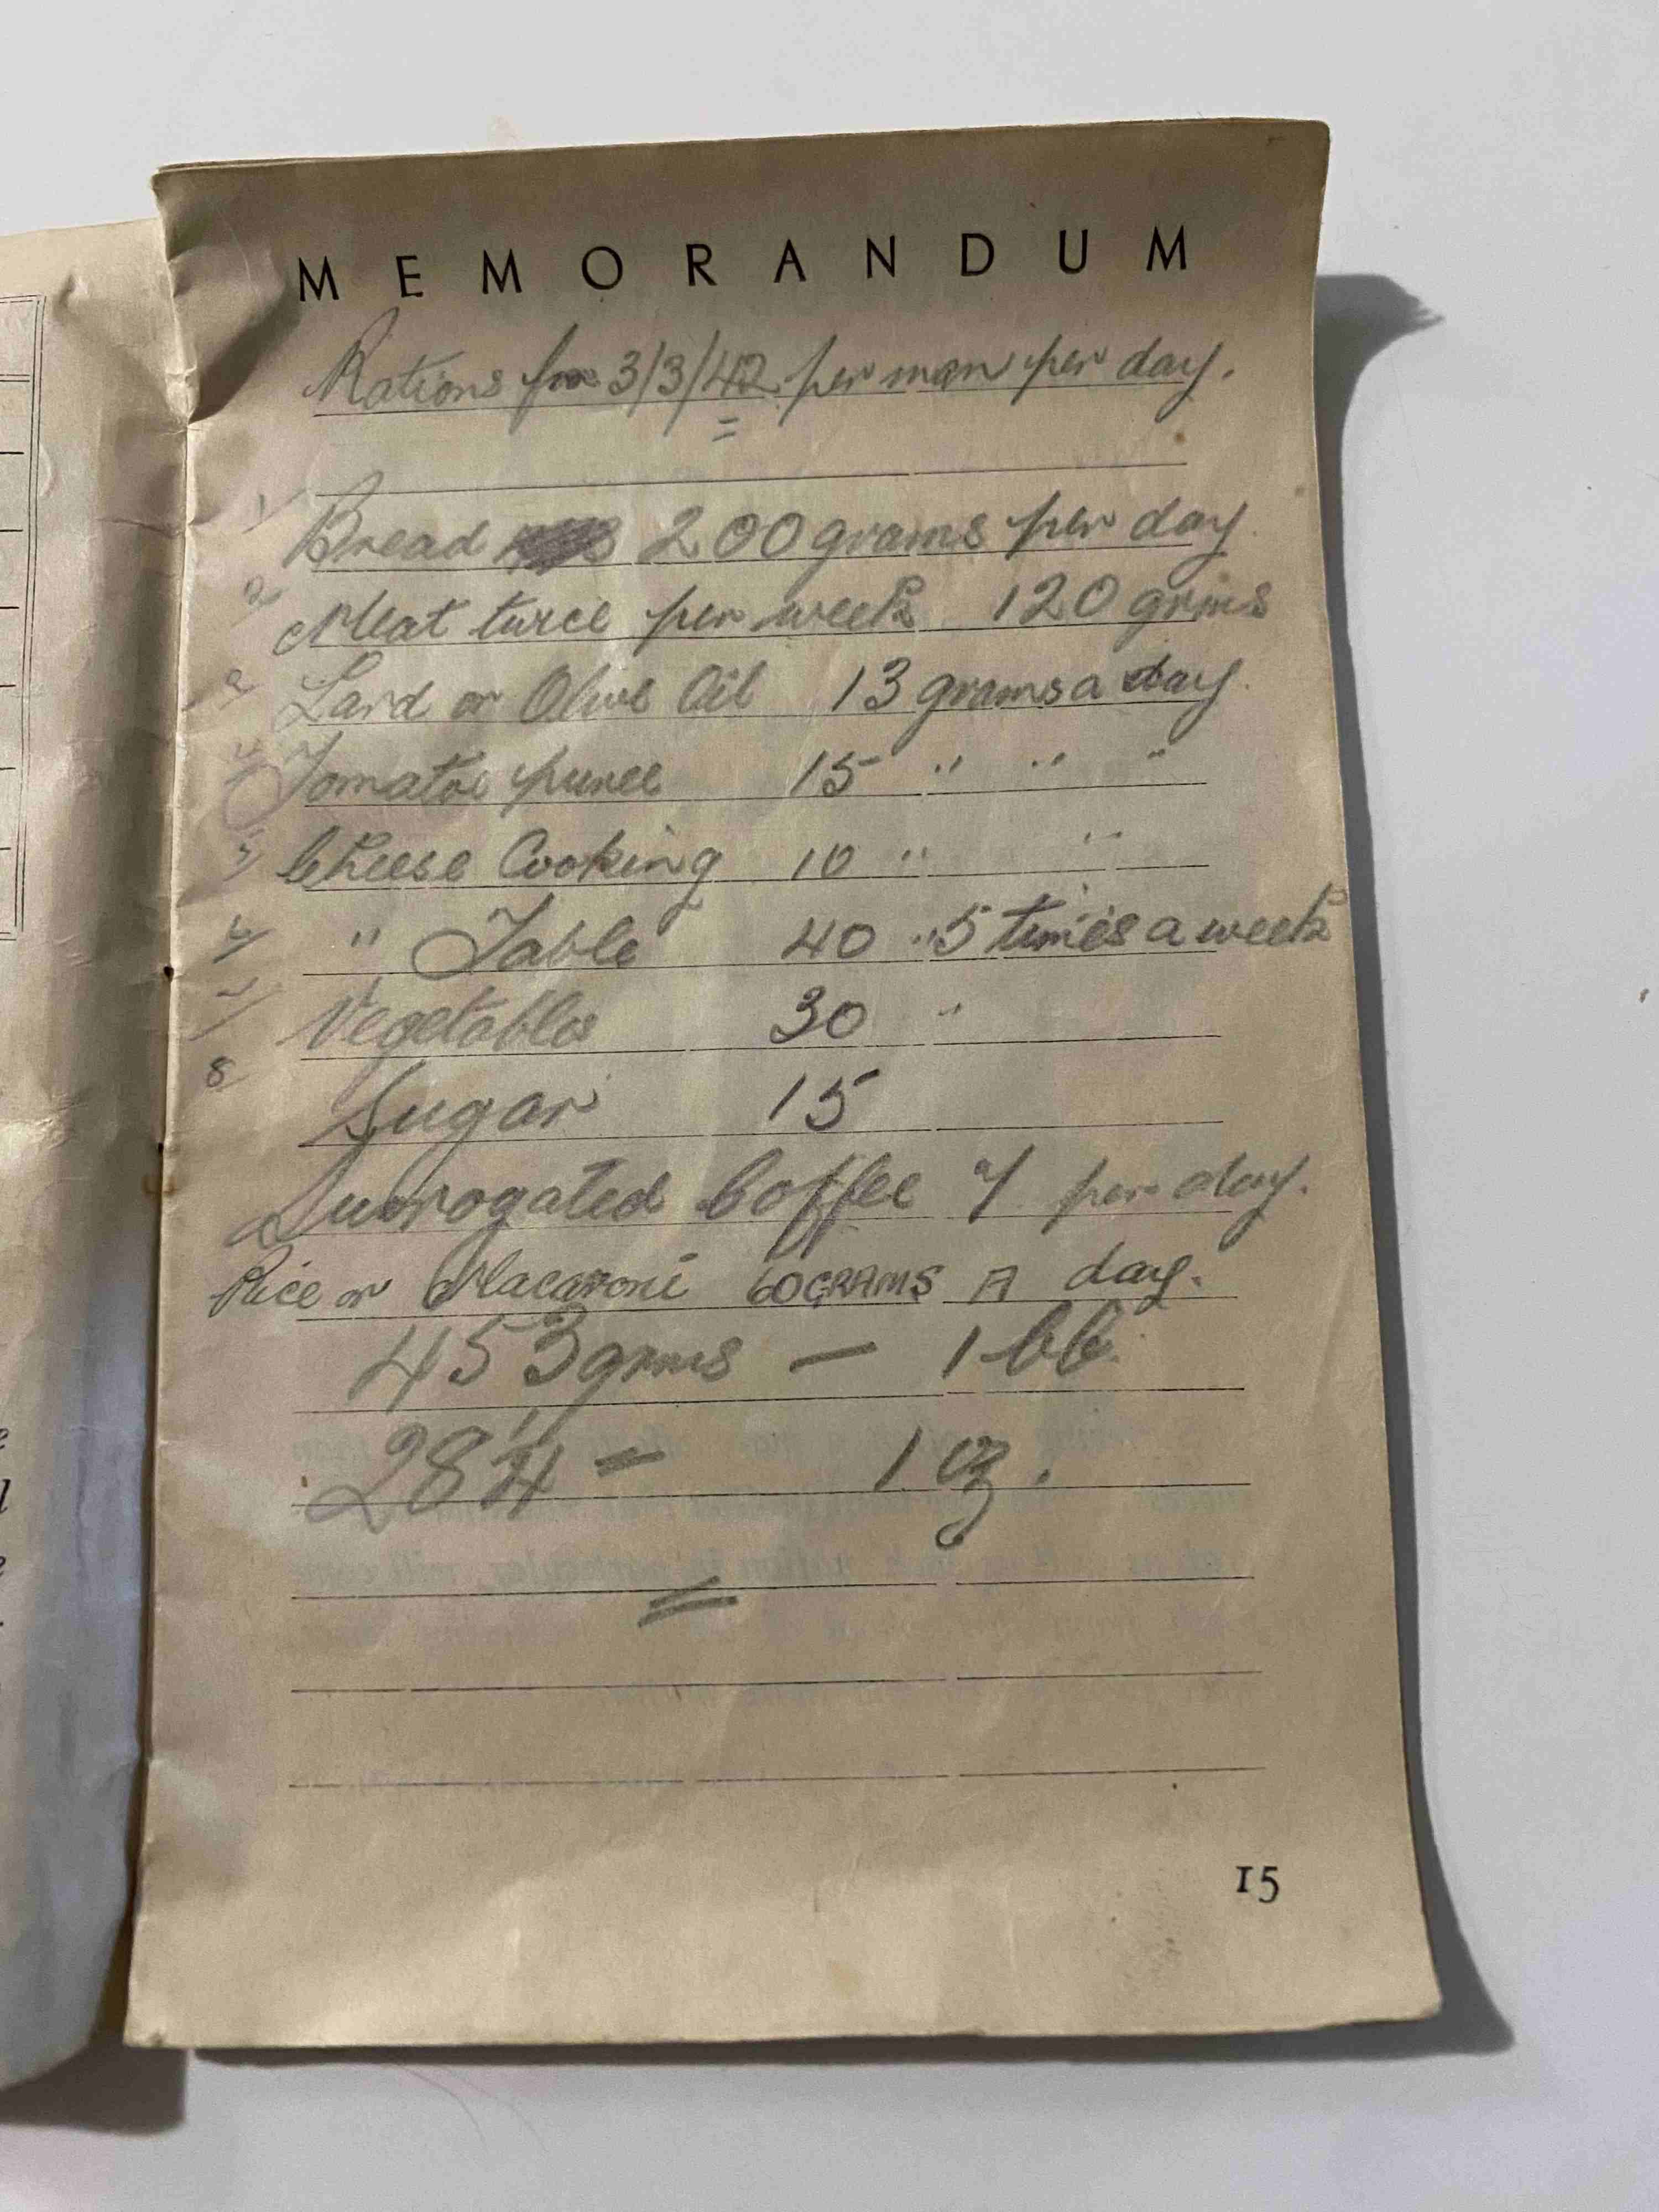 MEMORANDUM
Rations for 3/3/42 per man per day.
=
1/ Bread 200 grams per day
2/ Meat twice per week 120 grms
3/ Lard or Olive Oil 13 grams a day.
4/ Tomatoe puree 15 " " "
5/ Cheese Cooking 10 " "
6/ " Table 40 " 5 times a week
7/ Vegetables 30 "
8/ Sugar 15
Surrogated Coffee 7 per day.
Rice or Macaroni 60 GRAMS A day.
453 grms — 1 lb.
28 1/4 = 1 oz.
=
15